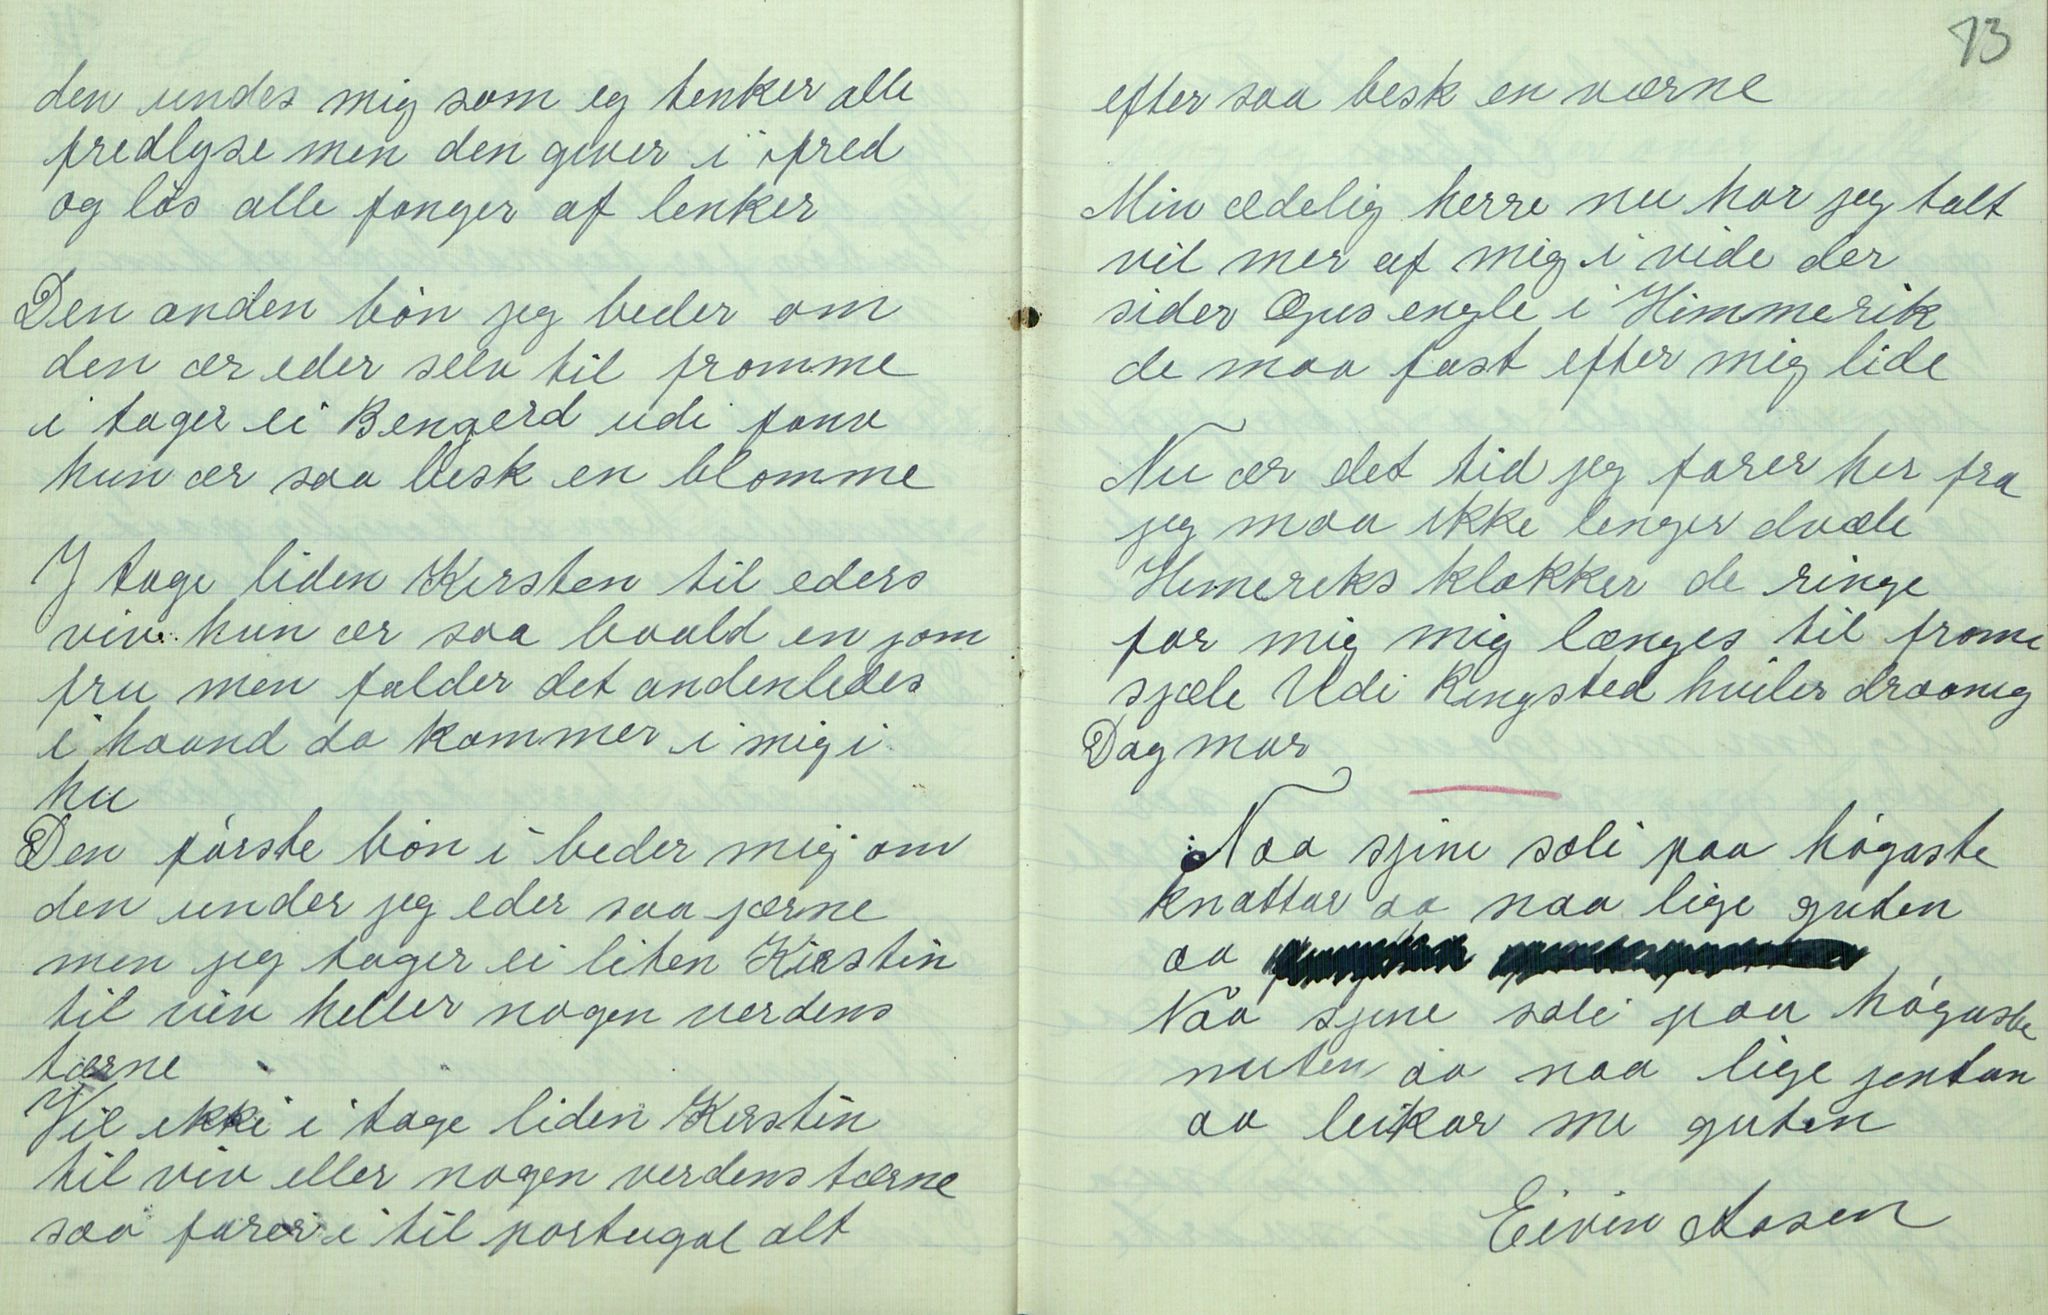 den undes mig som eg tenker alle
fredlyse men den giver i fred
og lös alle fanger af lenker
Den anden bön jeg beder om
den ær eder selv til fromme
i tager ei Bengerd udi favn
hun ær saa besk en blomme
I tage liden Kirsten til eders
viv hun ær saa baald en jom
fru men falder det andenledes
i haand da kommer i mig i
hu
Den förste bön i beder mig om
den under jeg eder saa jærne
men jeg tager ei liten Kirstin
til viv heller nogen verdens
tærne
Vil ikki i tage liden Kirstin
til viv eller nogen verdens tærne
saa farer i til portugal alt
73
efter saa besk enværne
Min ædelig herre nu har jeg talt
vil mer af mig i vide der
sider engle i Himmerik
de maa fast efter mig lide
Nu ær det tid jeg farer her fra
jeg maa ikke lenger dvæle
Himeriks klokker de ringe
for mig mig længes til frome
sjæle Udi Ringsted hviler draanig
Dagmar
Naa sjine soli paa högaste
knattar aa naa lige guten
aa
Naa sjine soli paa högaste
nuten aa naa lige jentan
aa leikar me guten
Eivin Aasen